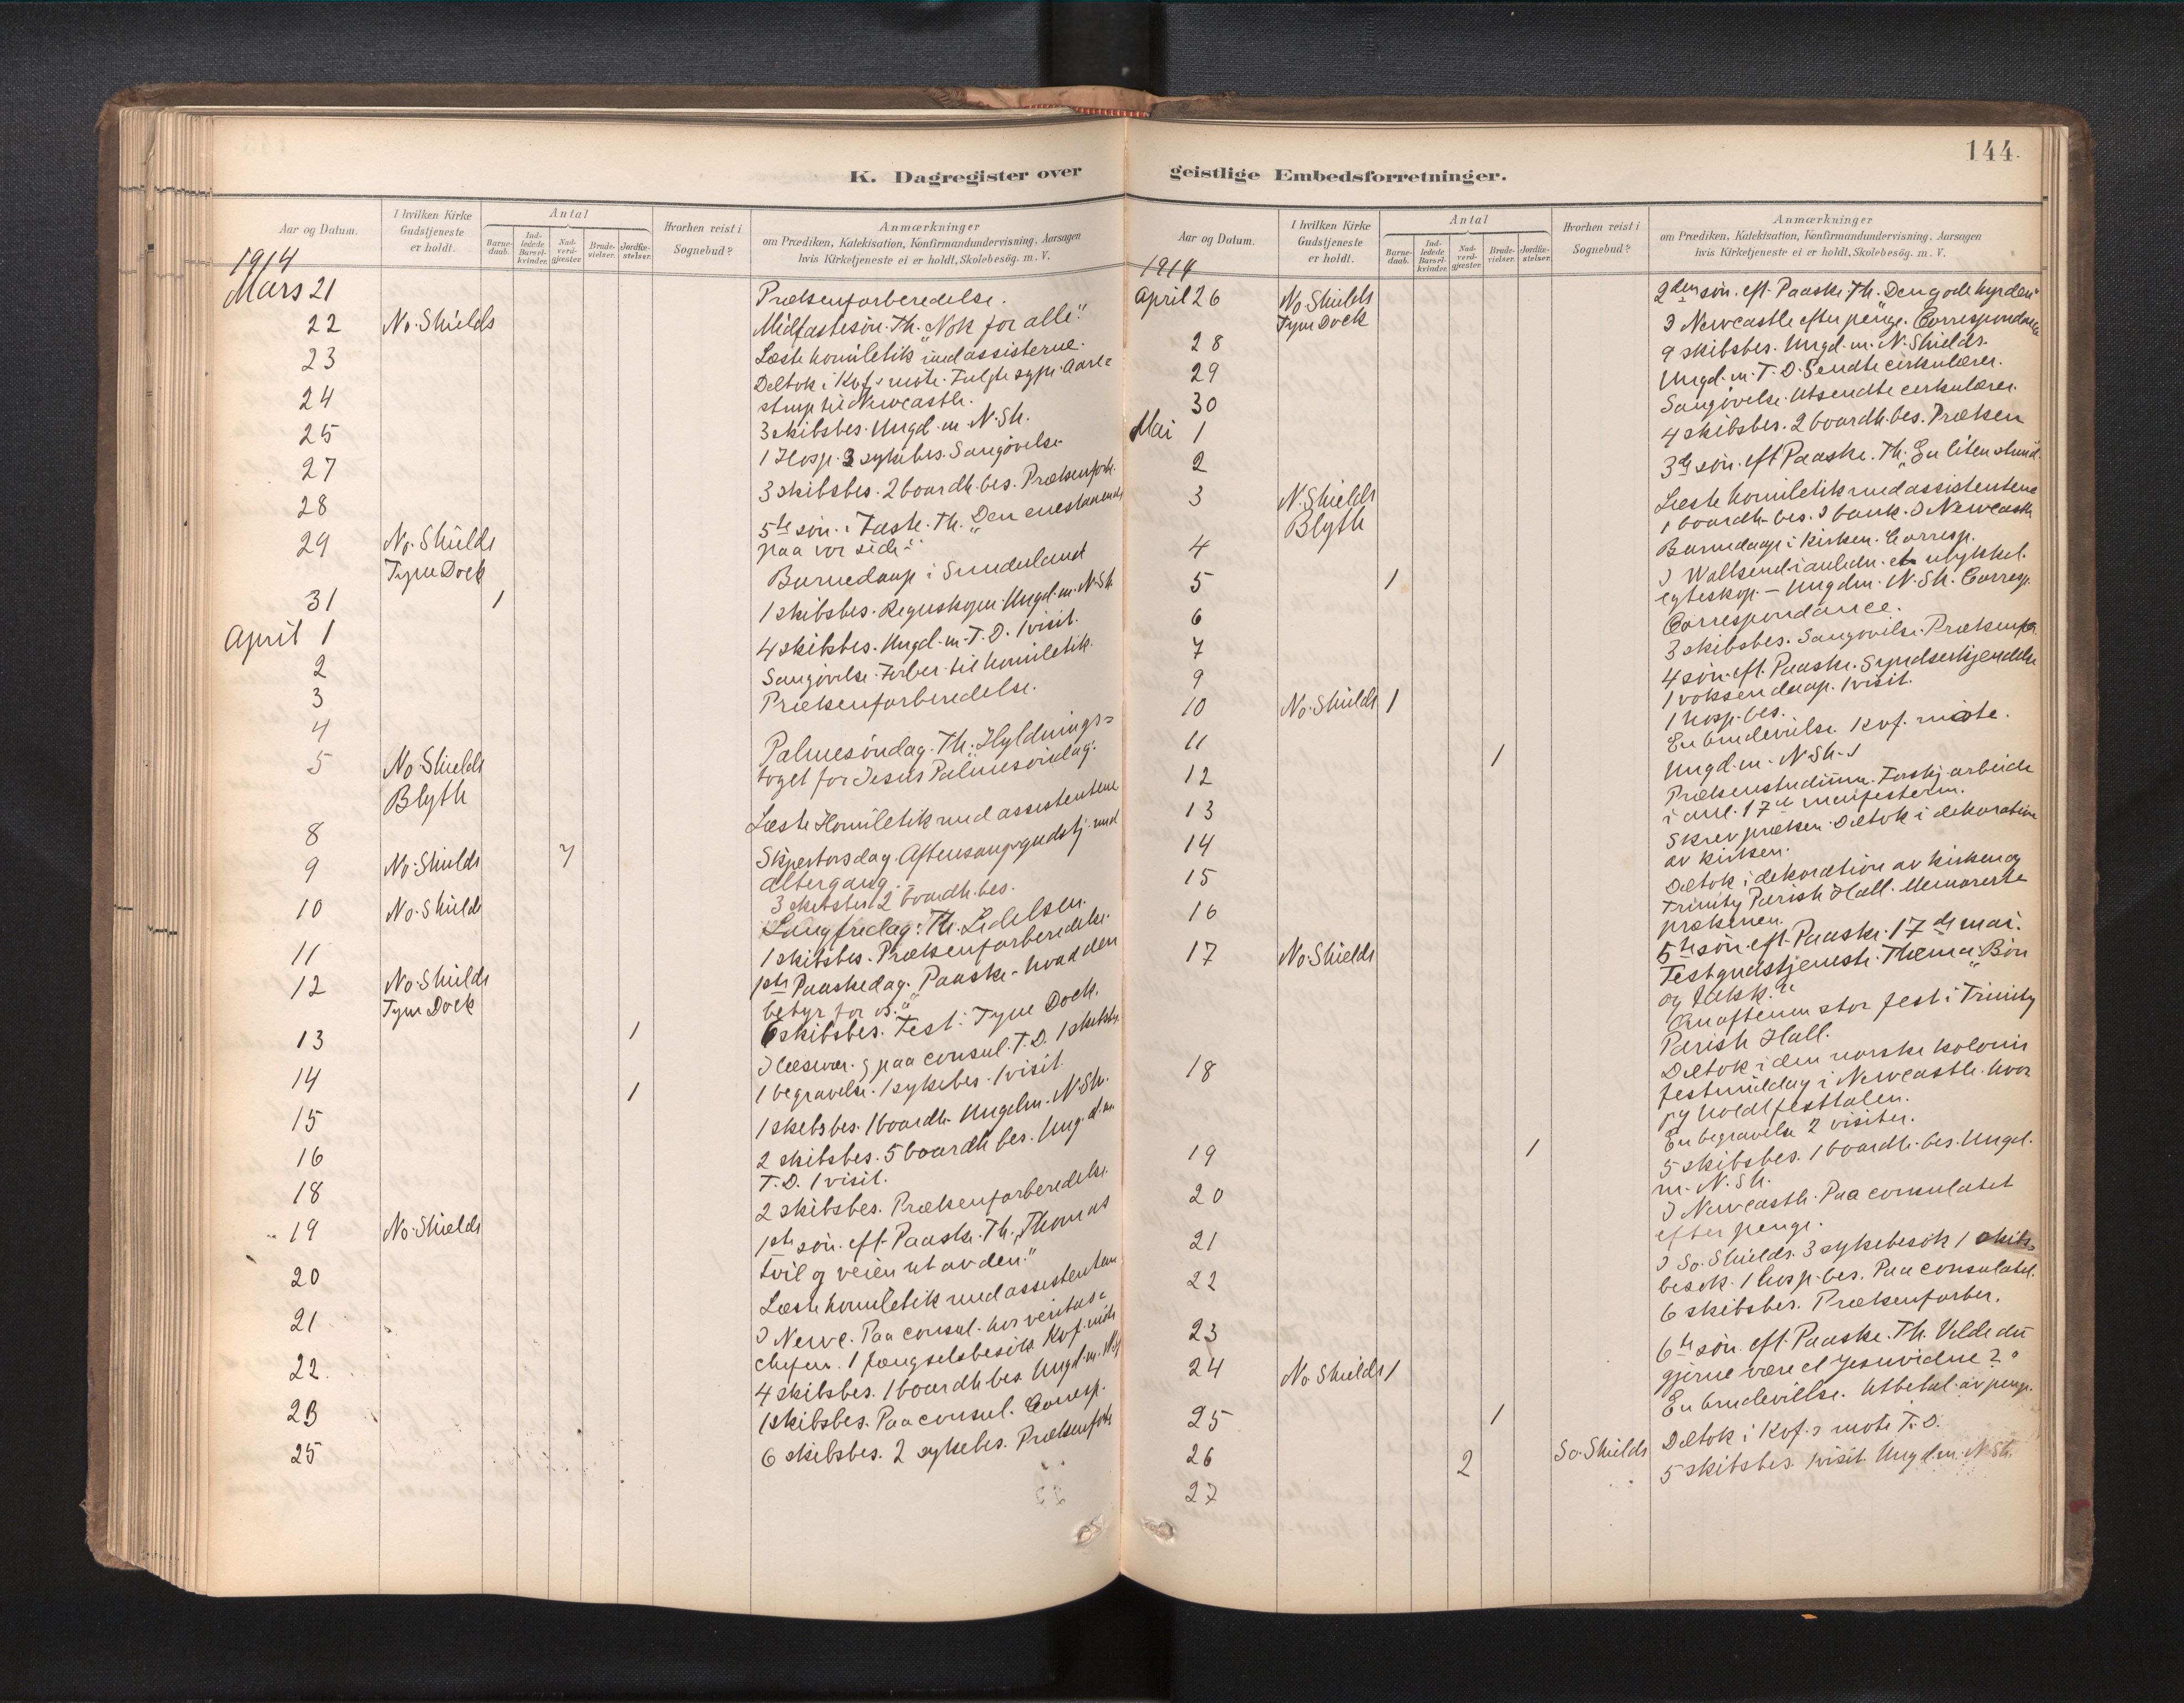 144.
K. Dagregister over
Aar og Datum.
I hvilken Kirke Gudstjeneste er holdt.
Antal
Barnedaab.
Indledede Barselkvinder.
Nadverdgjester.
Brudevielser.
Jordfæstelser.
Hvorhen reist i Sognebud?
Anmærkninger
om Prædiken, Katekisation, Konfirmandundervisning, Aarsagen
hvis Kirketjeneste ei er holdt, Skolebesög. m. V.
1914
Mars 21 Prækenforberedelse.
22 No. Shields Midfastesön. Th. "Nok for alle".
23 Læste homiletik med assisterne.
24 Deltok i Kvf.s möte. Fulgte sgpr. Aarestrup til Newcastle.
25 3 skibsbes. Ungd. m. N. Sh.
27 1 Hosp. 3 sykebes. Sangövelse
28 3 skibsbes. 2 boardh. bes. Prækenforb.
29 No. Shields 5te sön. i Faste. Th. "Den enestaaende
Tyne Dock paa vor side".
31 1 Barnedaap i Sunderland
April 1 1 skibsbes. Regnskapen. Ungd. m. N. Sh.
2 4 skibsbes. Ungd. m. T. D. 1 visit.
3 Sangövelse. Forber. til homiletik.
4 Prækenforberedelse.
5 No. Shields Palmesöndag. Th: Hyldnings=
Blyth toget for Jesus Palmesöndag.
8 Læste Homiletik med assistentene
9 No. Shields 7 Skjærtorsdag. Aftensangsgudstj. med
altergang.
3 skibsbes. 2 boardh. bes.
10 No. Shields Langfredag: Th. Lidelsen.
11 1 skibsbes. Prækenforberedelse.
12 No. Shields 1ste Paaskedag. "Paaske - hvad den
Tyne Dock betyr for os."
13 1 6 skibsbes. Fest: Tyne Dock.
14 1 I læsevær. og paa consul. T. D. 1 skibsbes.
1 begravelse. 1 sykebes. 1 visit.
15 1 skibsbes. 1 boardh. Ungdm. N. Sh.
16 2 skibsbes. 5 boardh bes. Ung. d. m.
T. D. 1 visit.
18 2 skibsbes. Prækenforberedelse.
19 No. Shields 1ste sön. eft. Paaske. Th. "Thomas
tvil og veien ut av den."
20 Læste homiletik med assistentene
21 I Newc. Paa consul. hos veritas=
chefen. 1 fængselsbesök. Kvf. möte
22. 4 skibsbes. 1 boardh bes. Ungd. m. N. Sh
23 1 skibsbes. Paa consul. Corresp.
25 6 skibsbes. 2 sykebes. Prækenforb.
geistlige Embedsforretninger.
Aar og Datum.
I hvilken Kirke Gudstjeneste er holdt.
Antal
Barnedaab.
Indledede Barselkvinder.
Nadverdgjester.
Brudevielser.
Jordfæstelser.
Hvorhen reist i Sognebud?
Anmærkninger
om Prædiken, Katekisation, Konfirmandundervisning, Aarsagen
hvis Kirketjeneste ei er holdt, Skolebesög. m. V.
1914
April 26 No. Shields 2den sön. eft. Paaske Th. "Den gode hyrden"
Tyne Dock I Newcastle efter penge. Correspondance
28 9 skibsbes. Ungd. m. N. Shields.
29 Ungd. m. T. D. Sendte cirkulærer.
30 Sangövelse. Utsendte cirkulærer.
Mai 1 4 skibsbes. 2 boardh. bes. Præken
2 3de sön. eft Paaske. Th. "En liten stund.
3 N. Shields Læste homiletik med assistentene
Blyth 1 boardh. bes. I bank. I Newcastle
4 Barnedaap i kirken. Corresp.
5 1 I Wallsend i anledn. et ulykkel.
egteskap. - Ungdm. N. Sh. Corresp.
6 Correspondance.
7 3 skibsbes. Sangövelse. Prækenfor.
9 4 sön. eft. Paaske. Syndserkjendelse
10 No. Shields 1 1 voksendaap. 1 visit.
1 hosp. bes.
11 1 En brudevielse. Kvf. möte.
12 Ungd. m. N. Sh.
13 Prækenstudium. Forskj. arbeide
i anl. 17de maifesten.
14 Skrev præken. Deltok i dekoration
av kirken.
15 Deltok i dekoration av kirken og
16 Trinity Parish Hall. Memorerte
prækenen.
17 No. Shields 5te sön. eft. Paaske. 17de mai.
Festgudstjeneste. Thema: "Bön
og Fælsk."
Om aftenen stor fest i Trinity
Parish Hall.
18 Deltok i den norske kolonis
festmiddag i Newcastle. hvor
jeg holdt festtalen.
19 1 En begravelse 2 visiter.
5 skibsbes. 1 boardh. bes. Ungd.
m. N. Sh.
20 I Newcastle. Paa consulatet
efter penge.
21 I So. Shields. 3 sykebesök 1 skibs=
22 besök. 1 hosp. bes. Paa consulatet.
23 6 skibsbes. Prækenforber.
24 No. Shields 1 6te sön. eft. Paaske. Th. Vilde du
gjerne være et Jesuvidne?"
25 1 En brudevielse. Utbetal. av penge.
26 2 So. Shields Deltok i Kvf.s möte T. D.
27 5 skibsbes. 1 visit. Ungd. m. N. Sh.